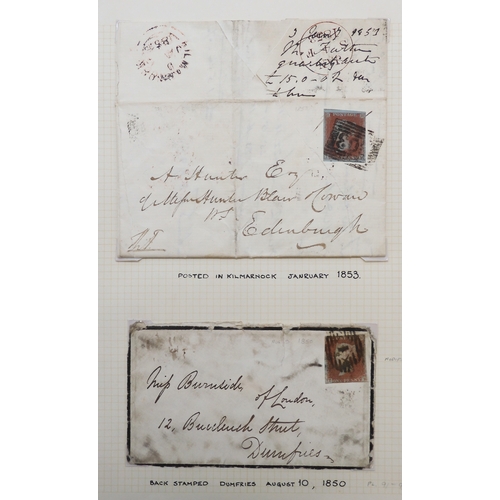 3 Jany 1853
£15.0.0
A Hunter Esqr,
of Messrs Hunter Blair & Cowan
WS
Edinburgh
POSTED IN KILMARNOCK JANRUARY 1853.
Miss Burnside
of London,
12, Buccleuch Street,
Dumfries
BACK STAMPED DUMFRIES AUGUST 10, 1850